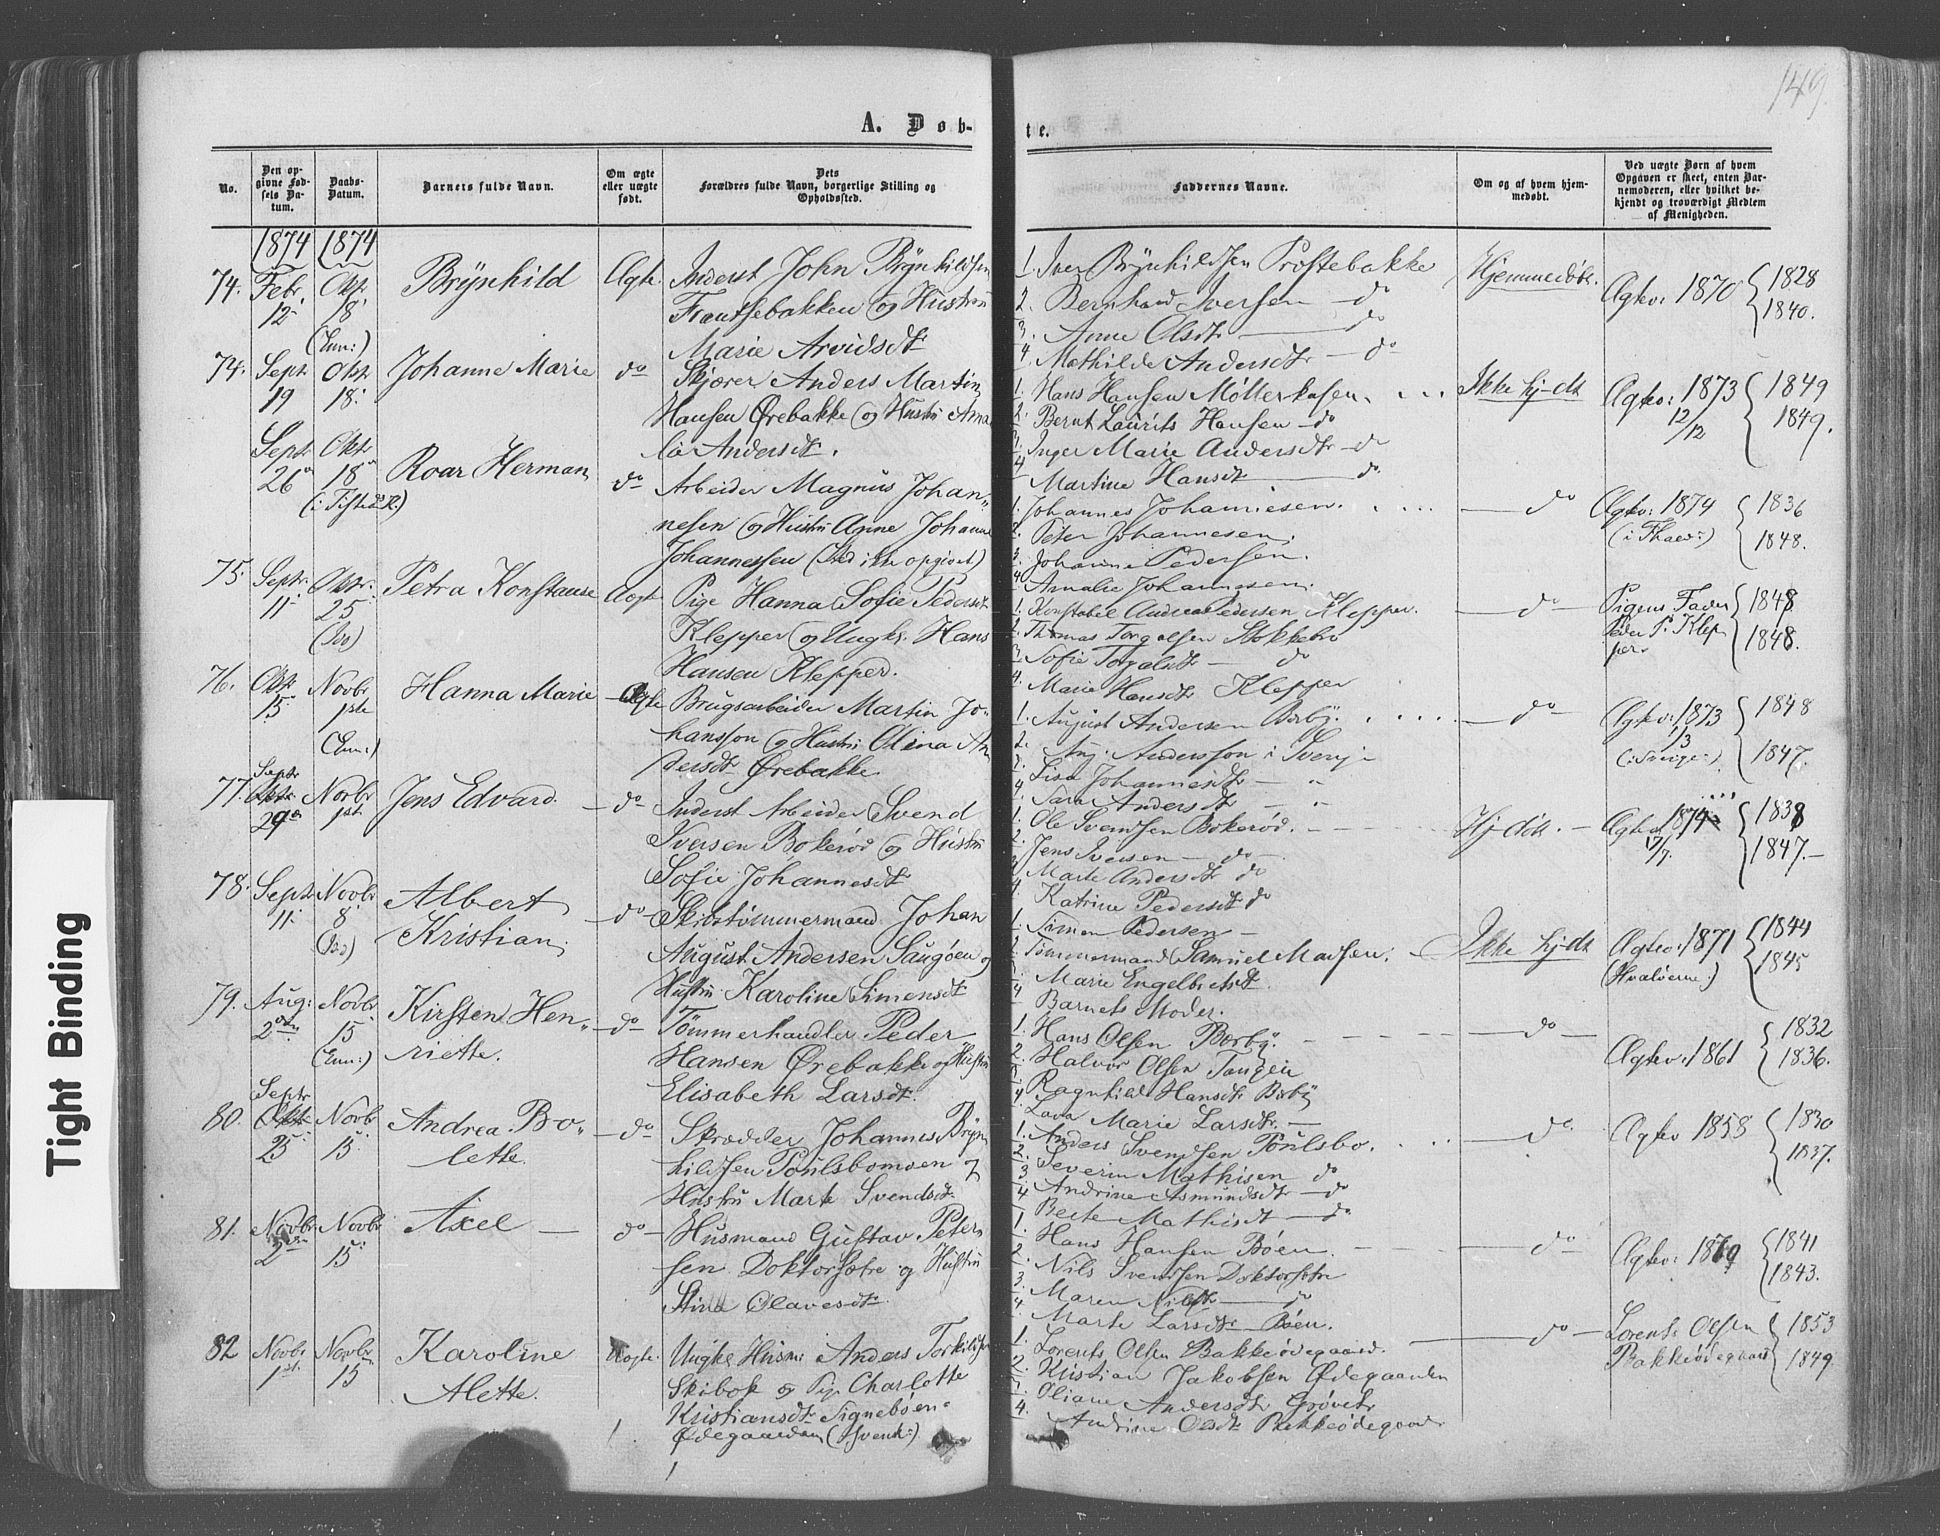 149.
A. Døb-
te.
No.
Den op-
givne Fød-
sels Da-
tum.
Daabs-
Datum.
Barnets fulde Navn.
Om ægte
eller uægte
født.
Dets
Forældres fulde Navn, borgerlige Stilling og
Opholdssted.
Faddernes Navne.
Om og af hvem hjem-
medøbt.
Ved uægte Børn af hvem
Opgaven er skeet, enten Bar-
nemoderen, eller hvilket be-
kjendt og troværdigt Medlem
af Menigheden.
1874 1874
74. Febr. 12 Oktr. 18 (Enn:)
Brynhild
Ægte.
Inderst John Brynhildsen
Frantsebakken og Hustru
Marie Arvidsdt
1. Iver Brynhildsen Prestebakke
2. Bernhard Iversen – do
3. Anne Olsdtr – do
4. Mathilde Andersdtr – do
Hjemmedøbt.
Ægtev: 1870 { 1828
1840.
74. Septr 19 Oktr. 18.
Johanne Marie
do
Skjører Anders Martin
Hansen Ørebakke og Hustr. Ama-
lia Andersdt.
1. Hans Hansen Møllerhasen.
2. Bernt Laurits Hansen – do
3. Inger Marie Andersdtr – do
4 Martine Hansdt do
Ikke hj-dt
Ægtev: 1873 { 1849
12/12 1849.
Septr 26 Oktr 18 (i Tistedr.)
Roar Herman
do
Arbeider Magnus Johan-
nesen og Hustru Anne Johanne
Johannessen (Sted ikke opgivet)
1. Johannes Johannesen.
2. Peter Johannesen.
3. Johanne Pedersen.
4. Amalie Johannesen.
do
Ægtev: 1874 { 1836
1848.
75. Septr. 11 Oktr. 25
Petra Konstanse
Uægt
Pige Hanna Sofie Pedersdt
Klepper og Ungk. Hans
Hansen Klepper.
1. Konstabel Andreas Pedersen Klepper.
2. Thomas Torgalsen Stokkebro
3. Sofie Torgalsdt – do
4. Marie Hansdtr Klepper
do
Pigens Fader { 1848
Peder P. Klep- 1848.
per.
76. Oktr. 15 Novbr 1ste (Enn:)
Hanna Marie
Ægte
Brugsarbeider Martin Jo-
hansson og Hustru Olina An-
dersdt Ørebakke
1. August Andersen Berby.
2. Aug. Andersson i Sverge
3. Lisa Johannesdtr – "
4 Sara Andersdt – "
do
Ægtev: 1873 { 1848
1/3
(i Sverge:) 1847.
77. Septr 29 Novbr 1ste
Jens Edvard
do
Inderst Arbeider Svend
Iversen Bokerød og Hustru
Sofie Johannesdt
1. Ole Svendsen Bokerød.
2. Jens Iversen – do –
3 Marte Andersdtr do
4. Katrine Pedersdt do
Hj-døbt. –
Ægtev 1874 { 1838
17/7. 1847.–
78. Septr 11 Novbr 8.
Albert
Kristian.
do
Skibstømmermand Johan
August Andersen Saugøen og
Hustru Karoline Simensdt
1. Simen Pedersen –
2. Tømmermand Samuel Madsen.
3. Marie Engelbretsdt.
4 Barnets Moder.
Ikke hj-dt
Ægtev: 1871 { 1844
(Hvaløerne:) 1845
79. Aug: 2den Novbr 15 (Enn:)
Kirsten Hen-
riette.
do
Tømmerhandler Peder
Hansen Ørebakke og Hustru
Elisabeth Larsdt.
1. Hans Olsen Berby.
2. Halvor Olsen Tangen
3 Ragnhild Hansdt Berby
4. Lava Marie Larsdtr. –
do
Ægtev: 1861 { 1832
1836.
80. Septr 25 Novbr 15.
Andrea Bo-
lette.
do
Skrædder Johannes Bryn-
hildsen Poulsbomoen og
Hustru Marte Svendsdt
1. Anders Svendsen Poulsbo.
2. Severin Mathisen do
3 Andrine Asmundsdt – do
4 Berte Mathisdt – do
do
Ægtev 1858 { 1830
1837.
81. Novbr 2den Novbr 15
Axel –
do
Husmand Gustav Peter-
sen Doktorsætre og Hustru
Stina Olavesdt
1. Hans Hansen Bøen.
2. Nils Svendsen Doktorsætre
3. Maren Nilsdtr – do
4. Marte Larsdtr Bøen.
do
Ægtev: { 1841
1843.
82 Novbr 1st. Novbr. 15
Karoline
Alette.
Uægte.
Ungk. Husm: Anders Torkildsen
Skibok og Pige Charlotte
Kristiansdt Signebøen-
Ødegaarden (Svensk:)
1. Lorents Olsen Bakkeødegaard.
2. Kristian Jakobsen Ødegaarden
3. Oliane Andersdtr Grøveto
4. Andrine Olsdt Bakkeødegaard
do –
Lorents Olsen { 1853
Bakkeødegaard 1849.
Tight Binding